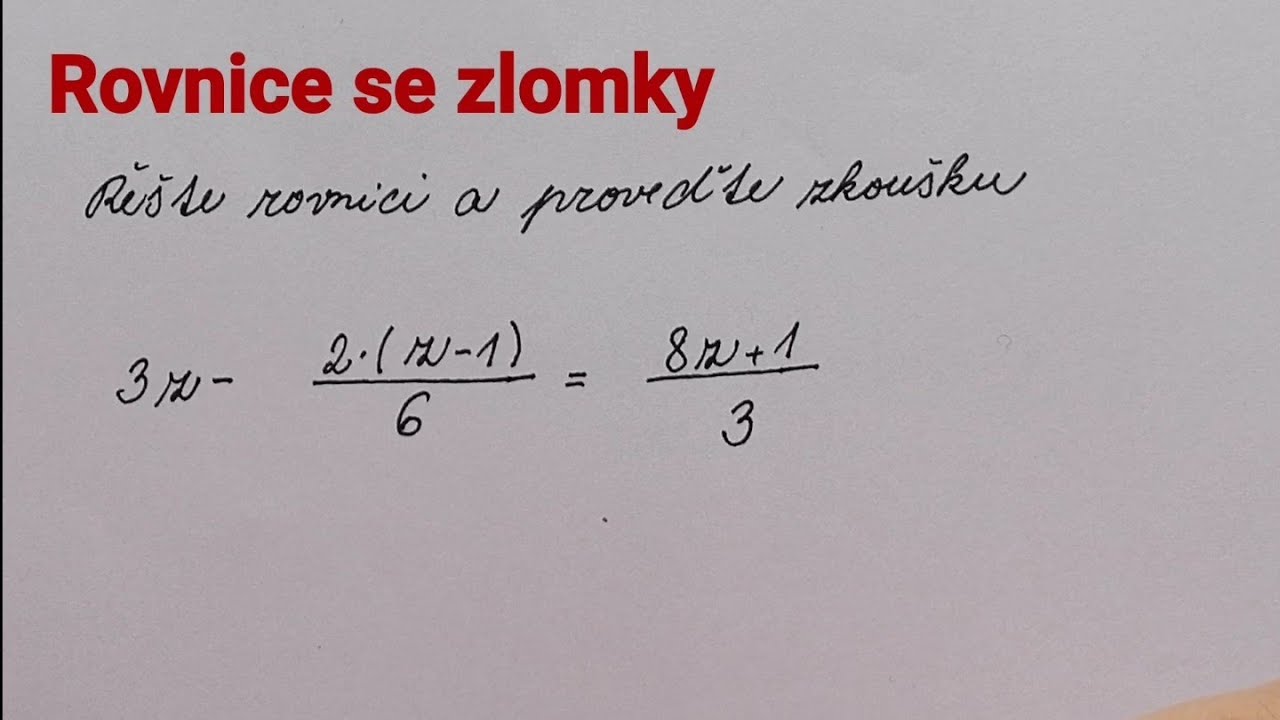 Rovnice se zlomky
Řěšte rovnici a proveďte zkoušku
3z - 2·(z-1)/6 = 8z+1/3